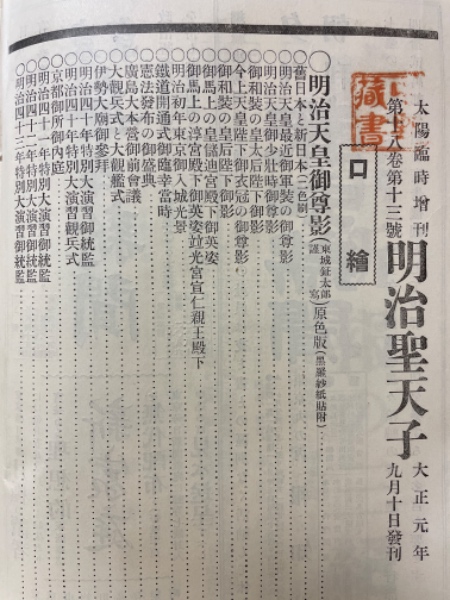 太陽臨時增刊
第十八卷第十三號
明治聖天子
大正元年
九月十日發刊
藏書
口繪
◯明治天皇御尊影(東城鉦太郎謹寫)原色版(黑羅紗紙貼附)
◯舊日本と新日本(二色刷)
◯明治天皇最近御軍裝の御尊影
◯明治天皇御少壯時御尊影
◯御和裝の皇太后陛下御影
◯今上天皇陛下御衣冠の御尊影
◯御和裝の皇后陛下御影
◯御馬上の皇儲迪宮殿下御英姿
◯御馬上の淳宮殿下御英姿竝光宮宣仁親王殿下
◯明治初年東京御入城光景
◯鐵道開通式御臨幸當時
◯憲法發布の御盛典
◯廣島大本營御前會議
◯大觀兵式と大觀艦式
◯伊勢大廟御參拜
◯明治四十年特別大演習御統監
◯明治四十年特別大演習觀兵式
◯京都御所御內庭
◯明治四十一年特別大演習御統監
◯明治四十二年特別大演習御統監
◯明治四十三年特別大演習御統監